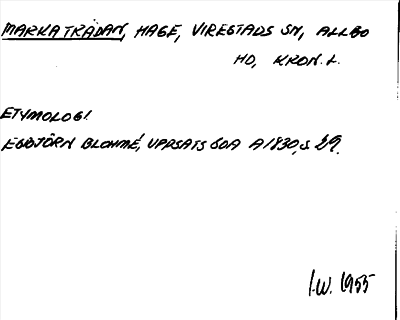 MARKATRÄDAN, HAGE, VIRESTADS SN, ALLBO
HD, KRON. L.
ETYMOLOGI
EGBJÖRN BLOHMÉ, UPPSATS SOA A1830, S 29.
I.W. 1955